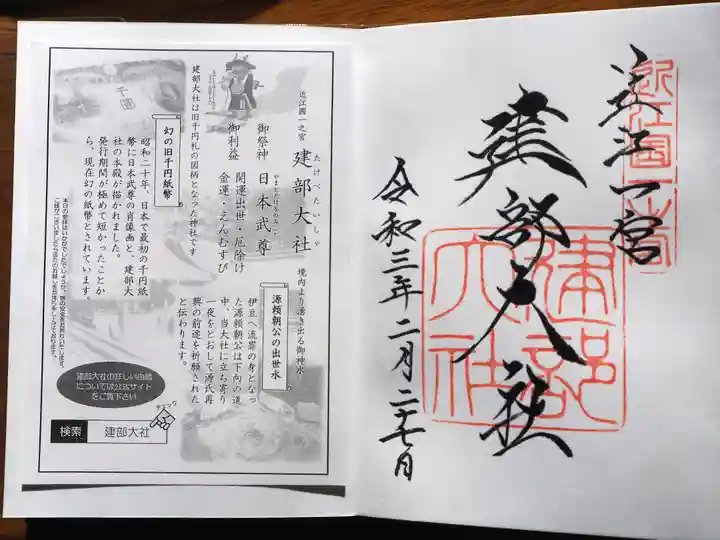 近江一宮
近江國一之宮
建部大社
建部大社
令和三年二月二十七日
近江國一之宮
建部大社
たけべたいしゃ
御祭神 日本武尊
やまとたけるのみこと
御利益 開運出世・厄除け
金運・えんむすび
建部大社は旧千円札の図柄となった神社です
千圓
幻の旧千円紙幣
昭和二十年、日本で最初の千円紙
幣に日本武尊の肖像画と、建部大
社の本殿が描かれました。
発行期間が極めて短かったことか
ら、現在幻の紙幣とされています。
境内より湧き出る御神水
源頼朝公の出世水
伊豆へ流罪の身となっ
た源頼朝公は下向の道
中、当大社に立ち寄り
一夜をとおして源氏再
興の前途を祈願された
と伝わります。
建部大社の詳しい由緒
については公式サイト
をご覧下さい
チェック
検索 建部大社